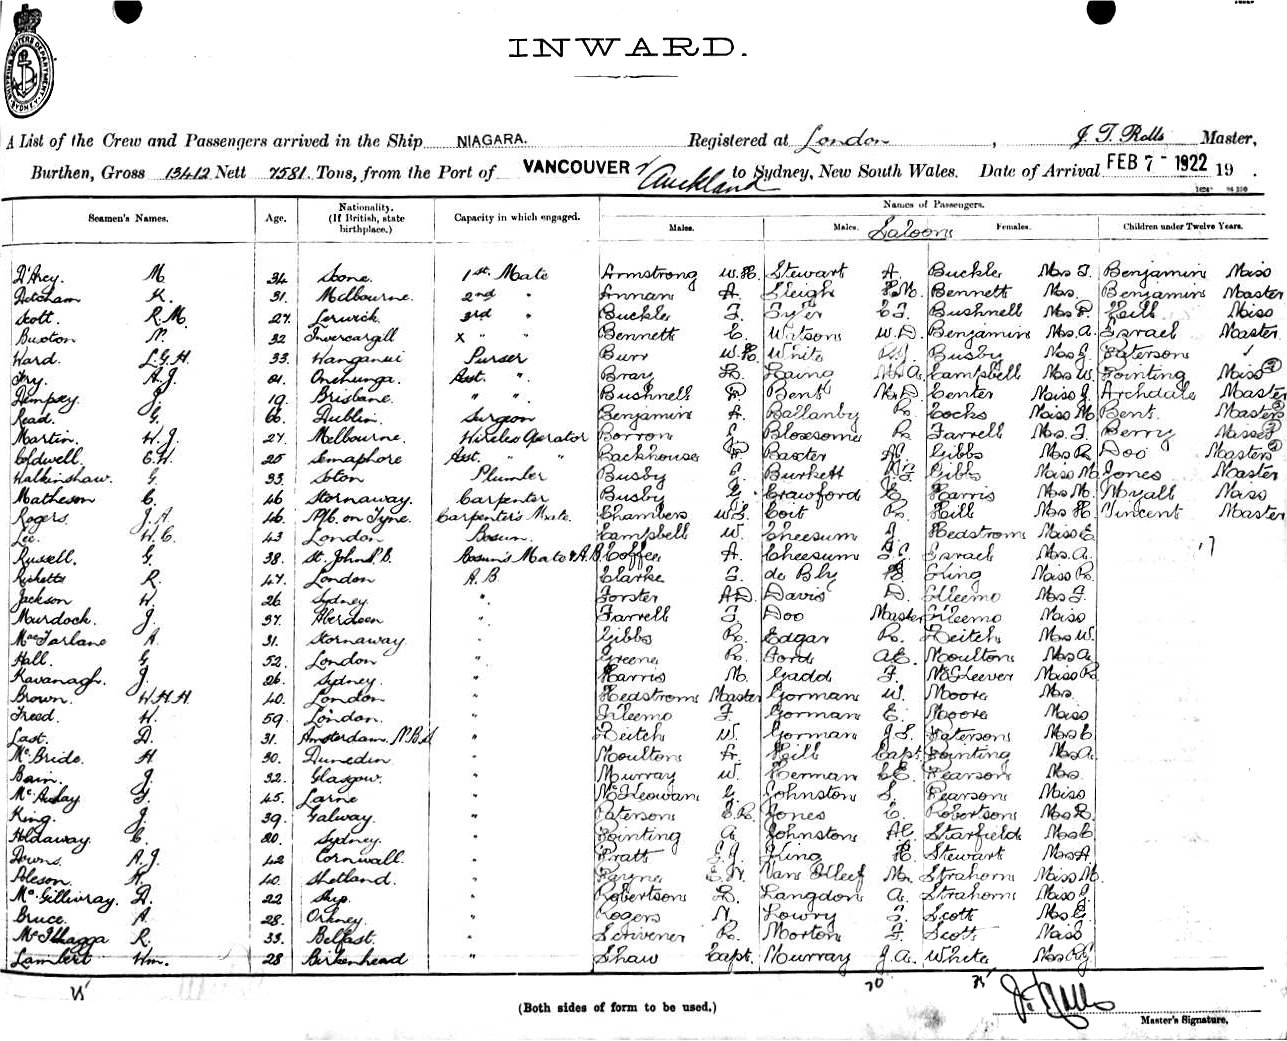 INWARD.
A List of the Crew and Passengers arrived in the Ship NIAGARA. Registered at London, J. T. Rolls Master,
Burthen, Gross 13412 Nett 7581 Tons, from the Port of VANCOUVER & Auckland to Sydney, New South Wales. Date of Arrival FEB 7 - 1922 19 .
Names of Passengers.
Seamen's Names. Age. Nationality. (If British, state birthplace.) Capacity in which engaged. Males. Males. Saloon Females. Children under Twelve Years.
D'Arcy. M 34 1st Mate Armstrong W.H. Stewart A. Buckler Mrs F. Benjamin Miss
K. 31. Melbourne. 2nd " Annan A. Sleigh H.M. Bennett Mrs. Benjamin Master
Scott. R.M. 27. Lerwick. 3rd " Buckler F. Tyer C.F. Bushnell Mrs P. Miss
Buxton N. 32 Invercargill X " " Bennett C. Watson W.D. Benjamin Mrs. A. Israel Master
Ward. L.G.H. 33. Wanganui Purser Burr W.H. White R.J. Busby Mrs J. Paterson
Fry. A.J. 21. Onehunga. Asst. ". Bray L. Laing Campbell Mrs W. Pointing Miss 2
Dempsey J. 19. Brisbane. " ". Bushnell P. Bent N.D. Center Miss J. Archdale Master
Read. G. 66. Dublin. Surgeon Benjamin A. Ballanby R. Cocks Miss M. Bent. Master
Martin. W.J. 27. Melbourne. Wireless Operator Borron Bloxsome R. Farrell Mrs. F. Berry Misses
Coldwell. C.H. 25 Semaphore Asst. " " Backhouse P. Baxter Gibbs Mrs R. Doo Masters
Walkinshaw. G. 33. Soton Plumber Busby J. Burkett Gibbs Miss M. Jones Master
Matheson C. 46 Stornaway. Carpenter Busby G. Crawford C. Harris Mrs M. Nyall Miss
Rogers. J.A. 46. N/C. on Tyne. Carpenter's Mate. Chambers W.S. Coit R. Hill Mrs H. Vincent Master
Lee. W.C. 43 London Bosun. Campbell W. Cheesum J. Hedstrom Miss E.
Russell. G. 38. St. John N.B. Bosun's Mate & A.B. Coffee A. Cheesum Israel Mrs. A. 17
Ricketts R. 47. London A.B. Clarke F. de Bly King Miss R.
Jackson W. 26. Sydney. ". Forster A.D. Davis D. Mrs F.
Murdoch. J. 37. Aberdeen " Farrell F. Doo Master Miss
MacFarlane A. 31. Stornaway. " Gibbs R. Edgar R. Leitch Mrs W.
Hall. G. 52. London ". Greene R. Ford A.C. Moulton Mrs A.
Kavanagh. J. 26. Sydney. " Harris M. Gadd F. McCleever Miss R.
Brown. W.H.H. 40. London " Hedstrom Master Gorman W. Moore Mrs.
Freed. W. 59. London. " F. Gorman E. Moore Miss
Last. D. 31. Amsterdam. " Leitch W. Gorman J.S. Paterson Mrs C.
McBride. H. 30. Dunedin. " Moulton A. Hill Capt. Pointing Mrs A.
Bain. J. 32. Glasgow. " Murray W. Herman C.E. Pearson Mrs.
McAulay J. 45. Larne " McKeowan G. Johnston S. Pearson Miss
King. J. 39. Galway. " Paterson C.R. Jones C. Robertson Mrs L.
Holdaway. C. 20. Sydney. " Pointing A. Johnston A.C. Starfield Mrs C.
Downs. A.J. 42 Cornwall. " Pratt G.J. King H. Stewart Mrs A.
Poleson. K. 40. Shetland. " Payne E.W. Van Kleef M. Strahorn Miss M.
McGillivray. D. 22 Skye. " Robertson L. Langdon A. Strahorn Miss J.
Bruce. A. 28. Orkney. " Rogers N. Lowry F. Scott Mrs G.
R. 33. Belfast. " Scrivener R. Morton F. Scott Miss
Lambert Wm. 28 Birkenhead " Shaw Capt. Murray J.A. White Mrs R.J.
70 75
(Both sides of form to be used.) J. T. Rolls
Master's Signature.